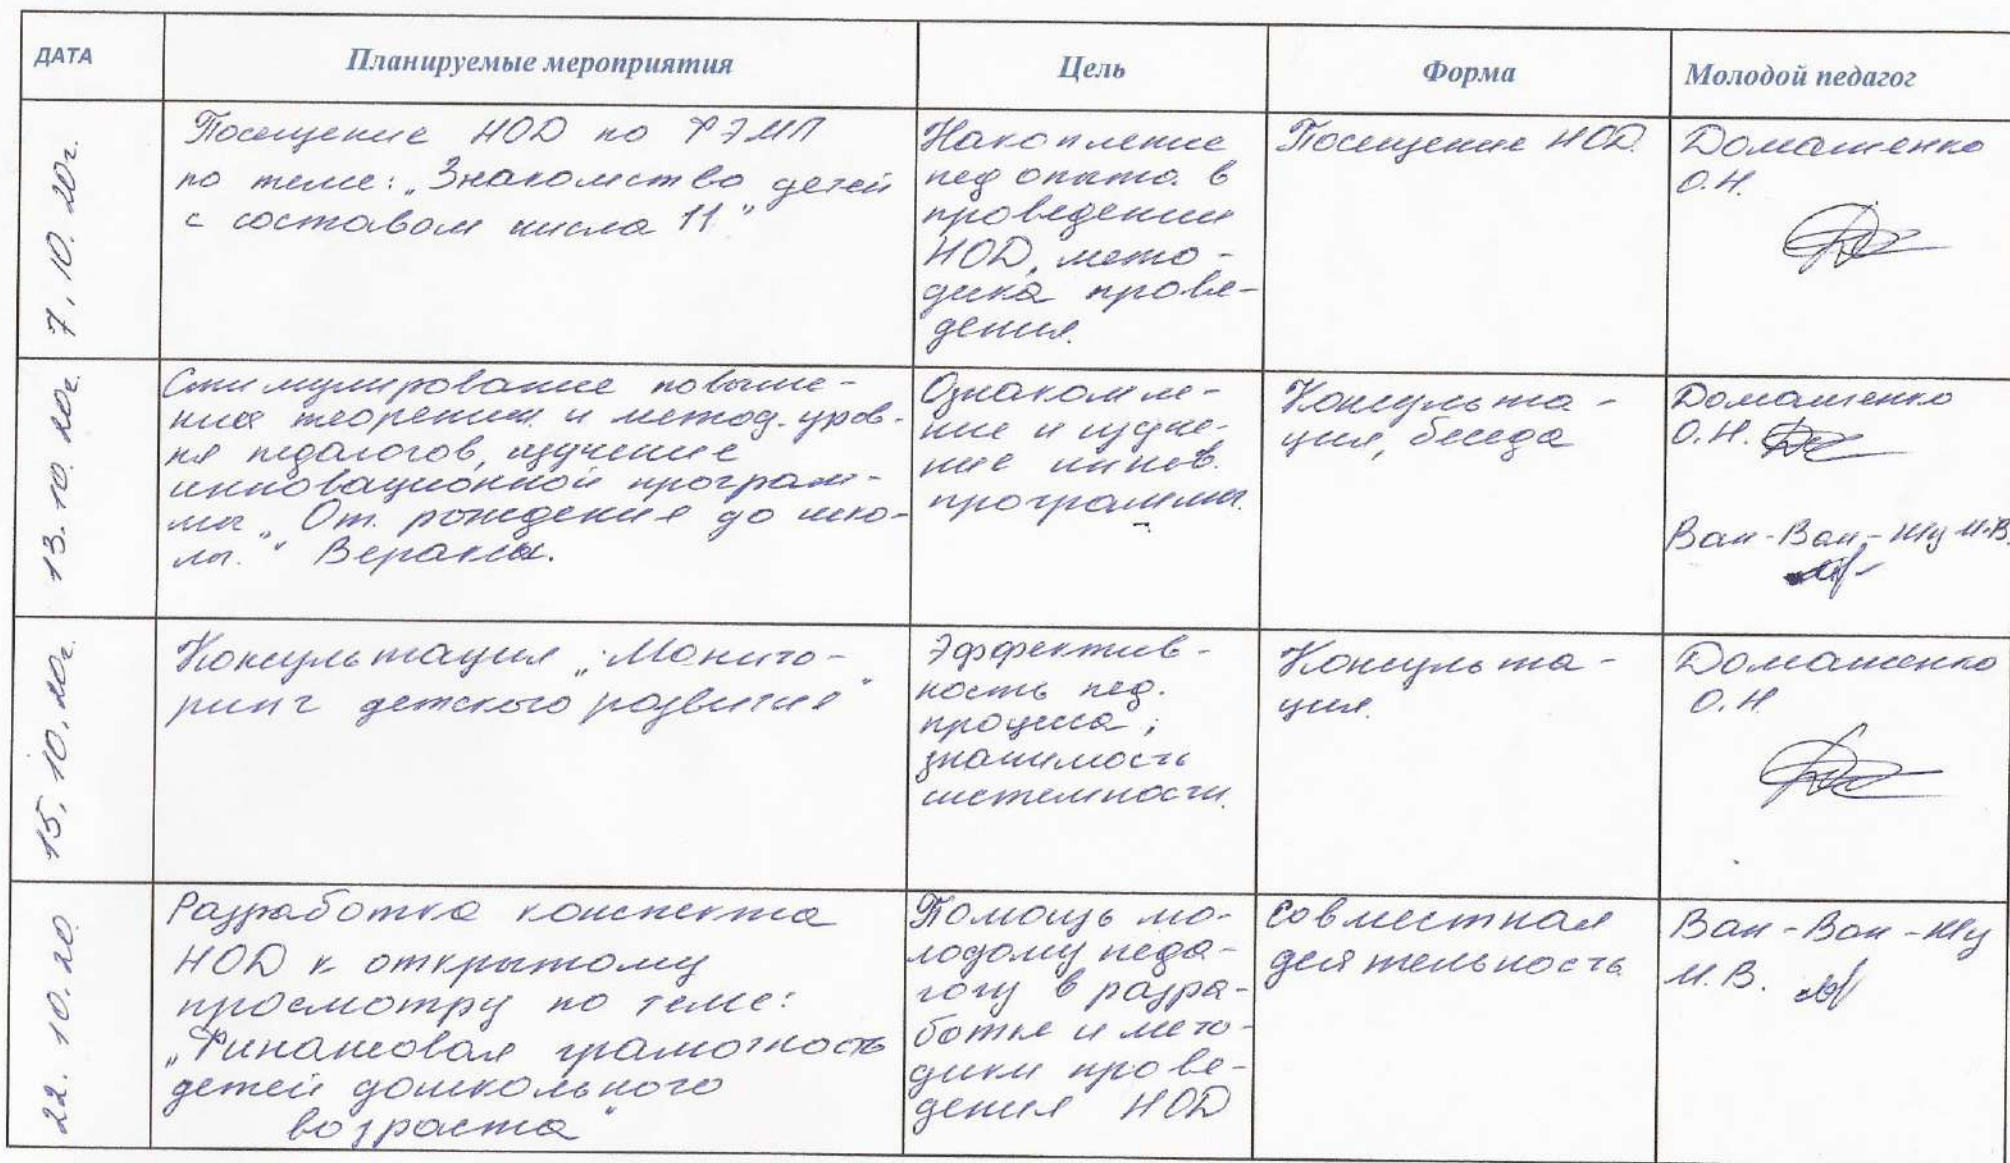 ДАТА
Планируемые мероприятия
Цель
Форма
Молодой педагог
7. 10. 20г.
Посещение НОД по ФЭМП
по теме: „Знакомство детей
с составом числа 11"
Накопление
пед опыта в
проведении
НОД, мето-
дика прове-
дения.
Посещение НОД.
Домашенко
О.Н.
13. 10. 20г.
Стимулирование повыше-
ния теоретич. и метод. уров-
ня педагогов, изучение
инновационной програм-
мы „От рождения до шко-
лы." Вераксы.
Ознакомле-
ние и изуче-
ние иннов.
программы.
Консульта-
ция, беседа
Домашенко
О.Н.
Ван-Ван-Шу М.В.
15. 10. 20г.
Консультация „Монито-
ринг детского развития"
Эффектив-
ность пед.
процесса;
значимость
системности.
Консульта-
ция.
Домашенко
О.Н
22. 10. 20
Разработка конспекта
НОД к открытому
просмотру по теме:
„Финансовая грамотность
детей дошкольного
возраста"
Помощь мо-
лодому педа-
гогу в разра-
ботке и мето-
дики прове-
дения НОД
Совместная
деятельность
Ван-Ван-Шу
М.В.